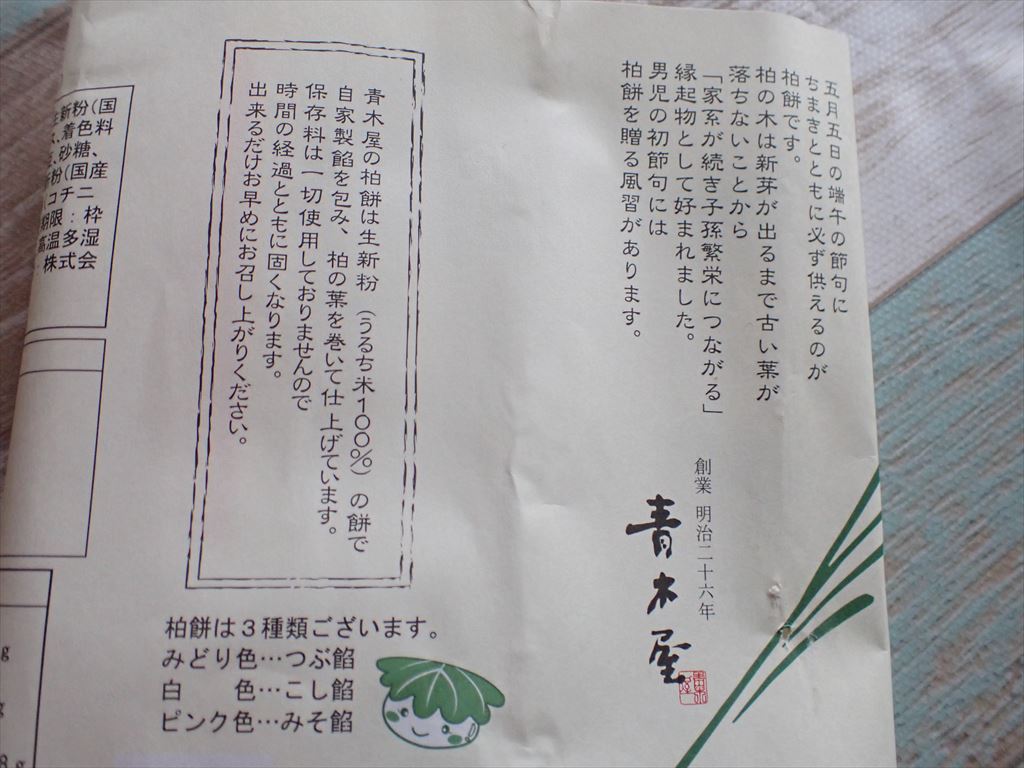 五月五日の端午の節句に
ちまきとともに必ず供えるのが
柏餅です。
柏の木は新芽が出るまで古い葉が
落ちないことから
「家系が続き子孫繁栄につながる」
縁起物として好まれました。
男児の初節句には
柏餅を贈る風習があります。
創業 明治二十六年
青木屋
青木屋の柏餅は生新粉(うるち米100%)の餅で
自家製餡を包み、柏の葉を巻いて仕上げています。
保存料は一切使用しておりませんので
時間の経過とともに固くなります。
出来るだけお早めにお召し上がりください。
柏餅は3種類ございます。
みどり色…つぶ餡
白　　色…こし餡
ピンク色…みそ餡
新粉(国
、着色料
、砂糖、
粉(国産
コチニ
期限:枠
高温多湿
株式会
g
8g